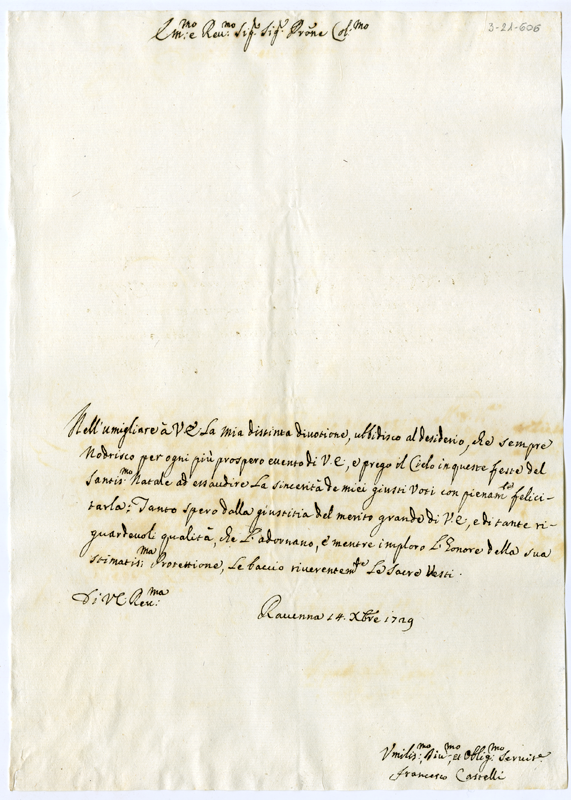 3-21-606
Em:mo e Reu:mo Sig.r Sig.r Prõne Col:mo
Nell'umigliare à V E La mia distinta divotione, ubbidisco al desiderio, che sempre
Nodrisco per ogni più prospero evento di V. E; e prego il Cielo in queste feste del
Santis:mo Natale ad essaudire La sincerità de miei giusti Voti con pienam:te felici-
tarla; Tanto spero dalla giustitia del merito grande di V. E, e di tante ri-
guardevoli qualità, che L'adornano, e mentre imploro L'honore della sua
stimatis:ma Protettione, Le baccio riverentem:te Le Sacre Vesti.
Di V E Reu:ma
Ravenna 14. Xbre 1729
Vmilis:mo Diu:mo, et Oblig:mo Seruit.e
Francesco Castelli